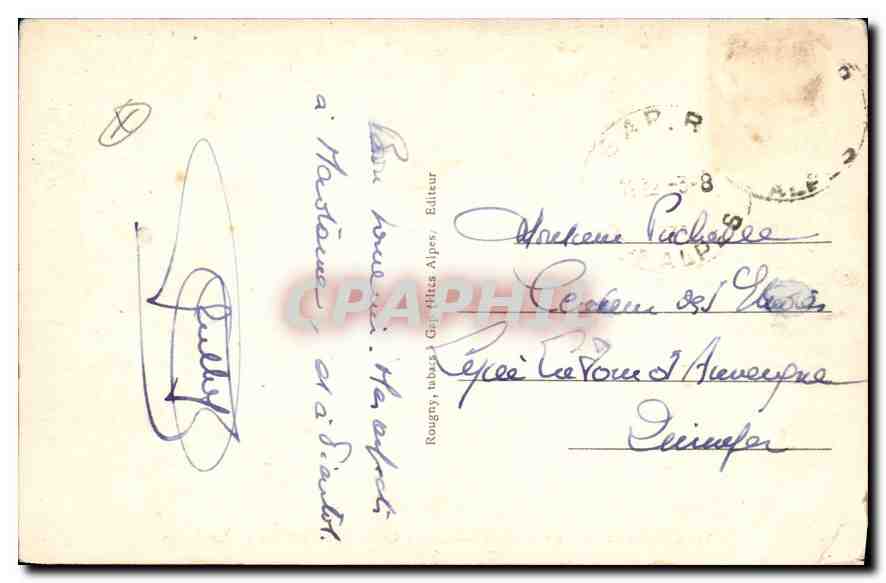 Bon souvenir. Mes respects
à Madame, et à bientôt.
Rougny, tabacs, Gap (Htes Alpes) Editeur
GAP.R
ALPES
ALP
Monsieur Puchelle
Censeur des Etudes
Lycée La Tour d'Auvergne
Quimper
CPAPHIL